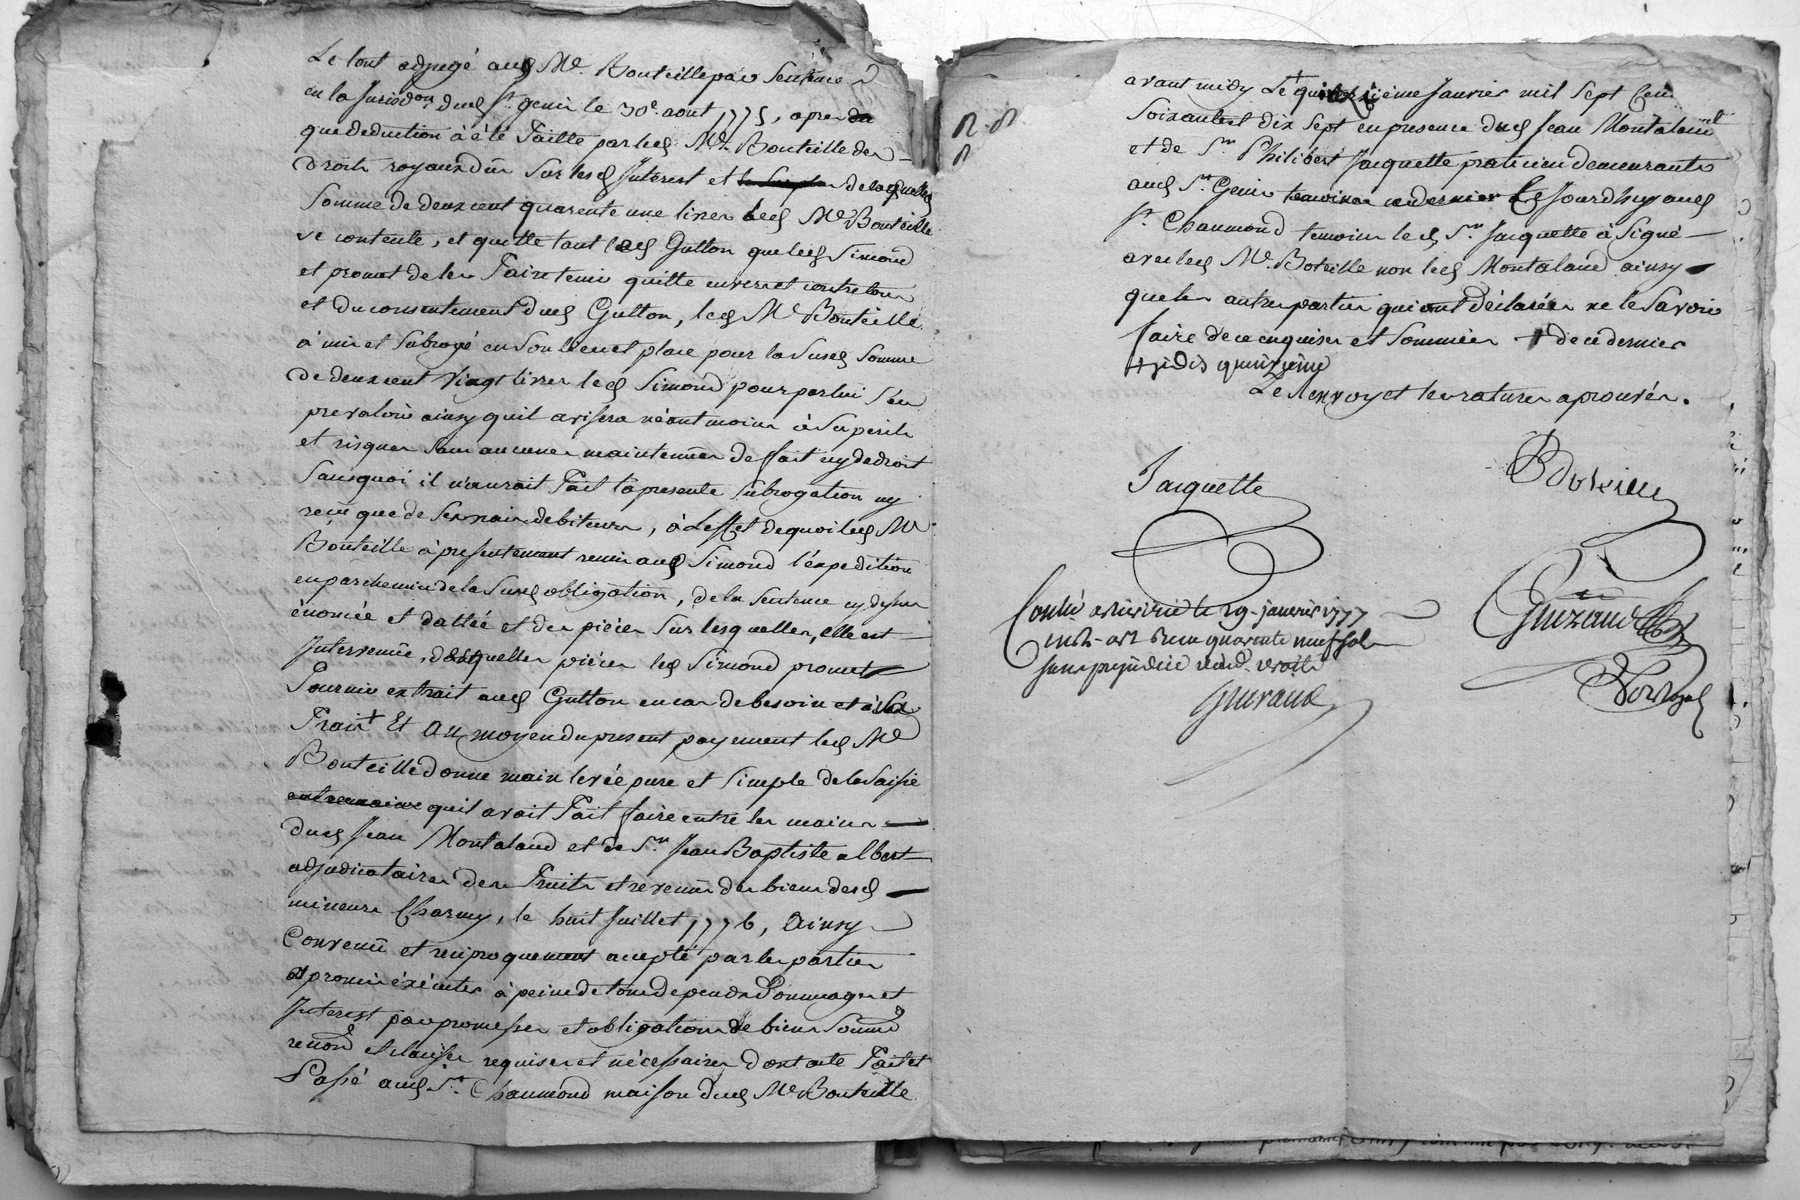 Le tout adjugé aud Me. Bouteille par Sentence
en la Jurisdon dud St. genis le 30e. aout 1775, apres
que deduction à été faitte par led Me. Bouteille des
Droits royaux dûs sur lesd Interest et de laquelle
Somme de deux cent quarente une livres led Me Bouteille
se contente, et quitte tant led Gutton que led Simond
et promet de les faire tenir quitte envers et contre tous
et du consentement dud Gutton, led Me Bouteille
à mis et subrogé en son lieu et place pour la susd somme
de deux cent vingt livres led Simond pour par lui s'en
prevaloir ainsy quil avisera néantmoins à ses perils
et risques sans aucunes maintenüe de fait ny de droit
sans quoi il n'auroit fait la presente subrogation ny
reçu que de ses vrais debiteurs, à L'effet de quoi led Me
Bouteille à presentement remis aud Simond l'éxpedition
en parchemin de la susd obligation, de la sentence cy dessus
énoncée et dattée et des pièces sur lesquelles, elle est
Intervenüe, desquelles pièces led Simond promet
fournir extrait aud Gutton en cas de besoin et à ses
frais Et au moyen du present payement led Me
Bouteille donne main levée pure et simple de la saisie
quil avoit fait faire entre les mains
dud Jean Montaland et de Sr. Jean Baptiste albert
adjudicataires des fruits et revenüs des biens desd
mineurs Charmy, le huit Juillet 1776, Ainsy
Convenü et reciproquement accepté par les parties
et promis éxécuter à peine de tous depends Dommages et
Interest par promesses et obligations de biens soumis
renond et clauses requises et nécessaires dont acte fait et
Passé aud St. Chaumond maison dud Me Bouteille
avant midy Le Janvier mil sept Cent
Soixante dix sept en presence dud Jean Montaland
et de Sr. Philibert Jacquette praticien demeurants
aud St. Genis temoins ce dernier Ce jourdhuy aud
St. Chaumond temoins led Sr. Jacquette à signé
avec led Me. Boteille non led Montaland ainsy
que les autres parties qui ont déclarées ne le savoir
faire de ce enquises et sommées + de ce dernier
+ jedis quinzieme
Le Renvoy et les ratures aprouvés.
Jacquette
Bouteille
Conlé à le 29. janvier 1777
Recu quarente neuf sols
sans prejudice
Guiraud